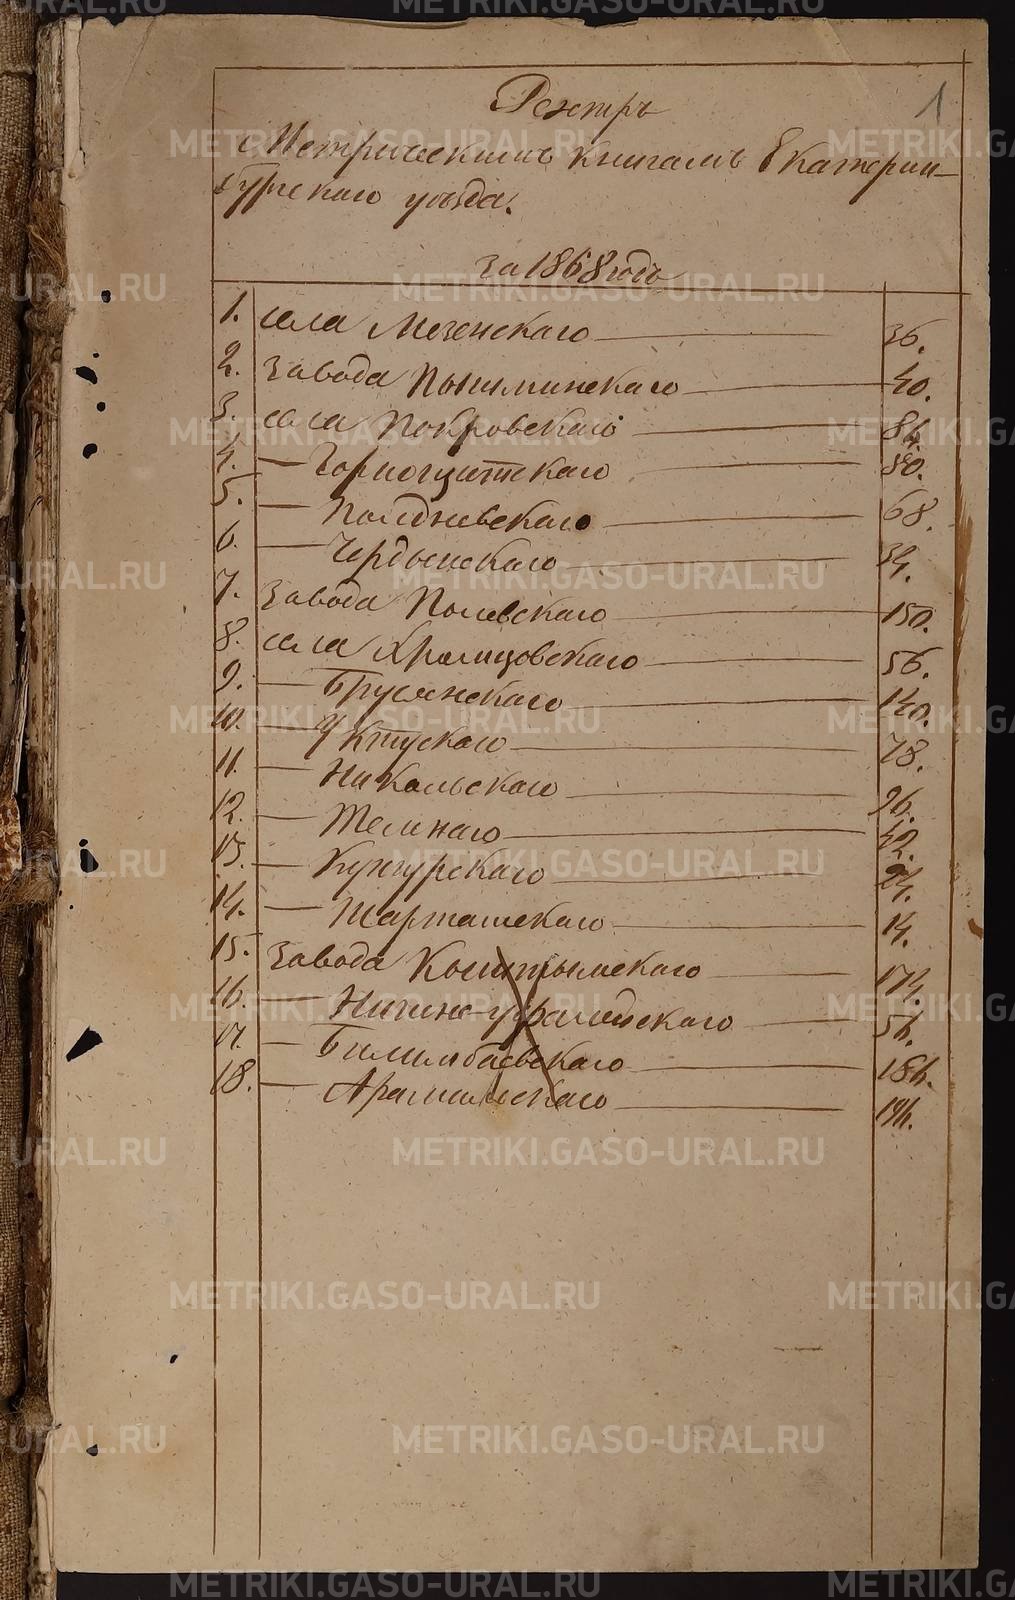 1
Реэстръ
Метрическимъ книгамъ Екатерин-
бургскаго уѣзда.
за 1868 годъ
1. села Меченскаго 36.
2. завода Пышминскаго 40.
3. села Покровскаго 84.
4. — Горнощитскаго 80.
5. — Полдневскаго 68.
6. — Чердынскаго 34.
7. завода Полевскаго 150.
8. села Храмцовскаго 56.
9. — Брусянскаго 140.
10. — Уктускаго 78.
11. — Никольскаго 26.
12. — Темнаго 42.
13. — Кунгурскаго 24.
14. — Шарташскаго 14.
15. завода Кыштымскаго 174.
16. — Нижне-уфалейскаго
17. — Билимбаевскаго 186.
18. — Арамильскаго
METRIKI.GASO-URAL.RU